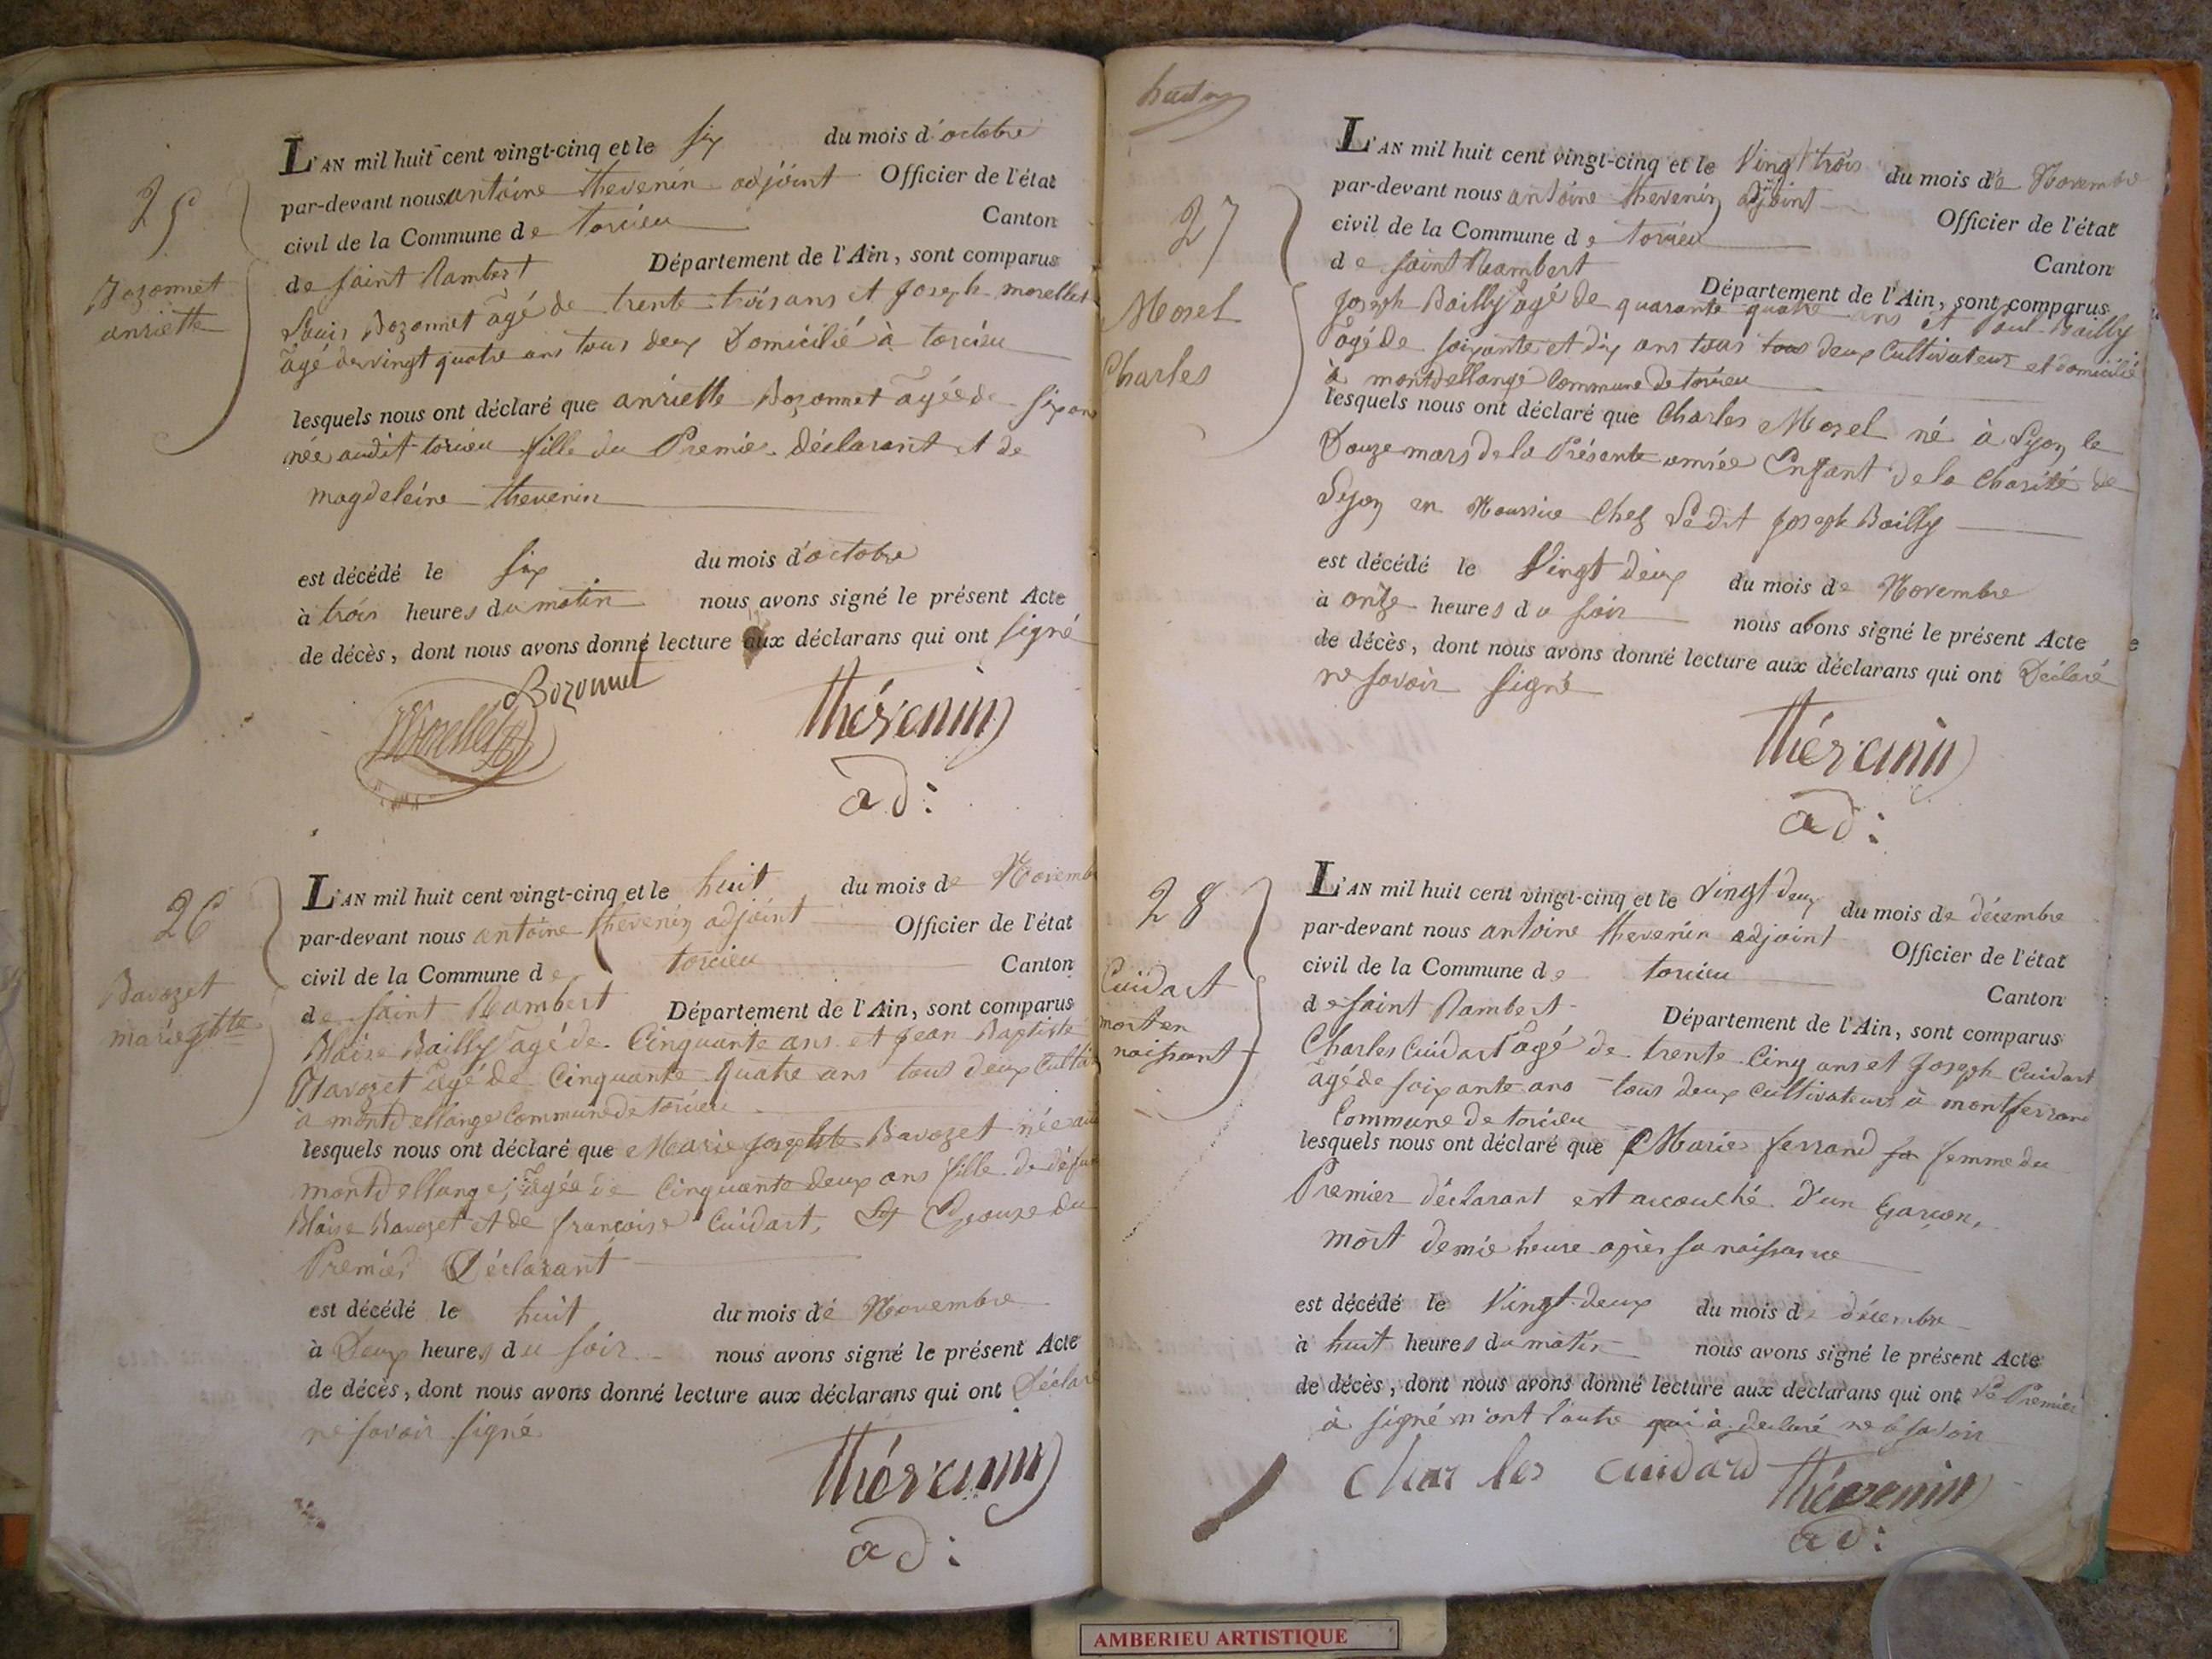 25
Bozonnet
anriette
L'AN mil huit cent vingt-cinq et le six du mois d'octobre
par-devant nous antoine thevenin adjoint Officier de l'état
civil de la Commune de torcieu Canton
de saint Rambert Département de l'Ain, sont comparus
Louis Bozonnet agé de trente trois ans et Joseph morellet
agé de vingt quatre ans tous deux Domicilié à torcieu
lesquels nous ont déclaré que anriette Bozonnet agée de six ans
née audit torcieu fille du Premier déclarant et de
magdeleine thevenin
est décédé le six du mois d'octobre
à trois heures du matin nous avons signé le présent Acte
de décès, dont nous avons donné lecture aux déclarans qui ont signé
Bozonnet
Morellet
thévenin
ad:
26
Bavozet
marie jtte
L'AN mil huit cent vingt-cinq et le huit du mois de Novemb
par-devant nous antoine thevenin adjoint Officier de l'état
civil de la Commune de torcieu Canton
de saint Rambert Département de l'Ain, sont comparus
Blaise Bailly agé de Cinquante ans et Jean Baptiste
Bavozet agé de Cinquante quatre ans tous deux Cultiv
à montdellange Commune de torcieu
lesquels nous ont déclaré que Marie josephte Bavozet née au
montdellange, agée de Cinquante deux ans fille de défunt
Blaise Bavozet et de françoise Cuidart, Et Epouse du
Premier Déclarant
est décédé le huit du mois de Novembre
à Deux heures du soir nous avons signé le présent Acte
de décès, dont nous avons donné lecture aux déclarans qui ont Déclaré
ne savoir signé
thévenin
ad:
27
Morel
Charles
L'AN mil huit cent vingt-cinq et le Vingt trois du mois de Novembre
par-devant nous antoine thevenin adjoint Officier de l'état
civil de la Commune de torcieu Canton
de saint Rambert Département de l'Ain, sont comparus
Joseph Bailly agé de quarante quatre ans et Paul Bailly
agé de soixante et dix ans tous tous deux Cultivateur et domicilié
à montdellange Commune de torcieu
lesquels nous ont déclaré que Charles Morel né à Lyon le
Douze mars de la Présente année Enfant de la Charité de
Lyon en Nourrice Chez Ledit Joseph Bailly
est décédé le Vingt deux du mois de Novembre
à onze heures du soir nous avons signé le présent Acte
de décès, dont nous avons donné lecture aux déclarans qui ont Déclaré
ne savoir signé
thévenin
ad:
28
Cuidart
mort en
naissant
L'AN mil huit cent vingt-cinq et le Vingt deux du mois de décembre
par-devant nous antoine thevenin adjoint Officier de l'état
civil de la Commune de torcieu Canton
de saint Rambert Département de l'Ain, sont comparus
Charles Cuidart agé de trente Cinq ans et Joseph Cuidart
agé de soixante ans tous deux Cultivateurs à montferrand
Commune de torcieu
lesquels nous ont déclaré que Marie ferrand sa femme du
Premier déclarant est accouché d'un Garcon,
mort demie heure après sa naissance
est décédé le Vingt deux du mois de décembre
à huit heures du matin nous avons signé le présent Acte
de décès, dont nous avons donné lecture aux déclarans qui ont Le Premier
à signé n'ont l'autre qui à declaré ne le savoir
Charles cuidard
thévenin
ad:
AMBERIEU ARTISTIQUE